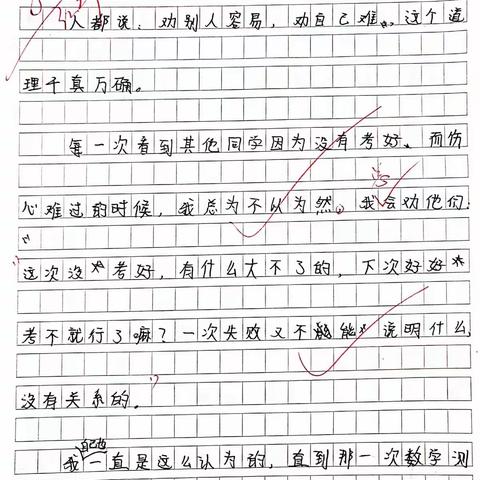 人都说：劝别人容易，劝自己难。这个道
理千真万确。
每一次看到其他同学因为没有考好、而伤
心难过的时候，我总为不以为然。我会劝他们：
“这次没考好，有什么大不了的，下次好好
考不就行了嘛？一次失败又不能说明什么，
没有关系的。”
我自己也一直是这么认为的，直到那一次数学测